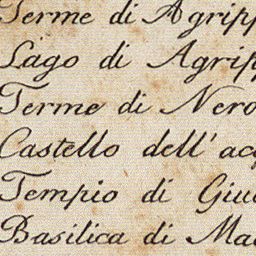 Terme di Agripp
Lago di Agripp
Terme di Nero
Castello dell' acq
Tempio di Giu
Basilica di Ma